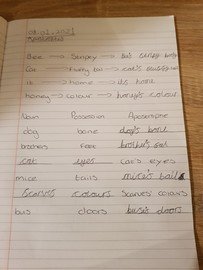 Bee → Stripey →
Cat → Furry tail → cat's
It → home → its home
honey → colour → honey's colour
Noun Possession Apostrophe
dog bone dog's bone
brothers Feet brother's feet
cat eyes cat's eyes
mice tails mice's tail
Scarves colours Scarves colours
bus doors bus's doors